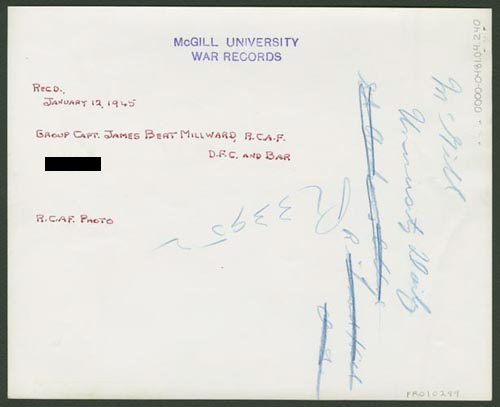 McGILL UNIVERSITY
WAR RECORDS
REC'D.,
JANUARY 12, 1945
GROUP CAPT. JAMES BERT MILLWARD, R.C.A.F.
D.F.C. AND BAR
R.C.A.F. PHOTO
R 33952
McGill
University
0000-0481.04.240
PR010299